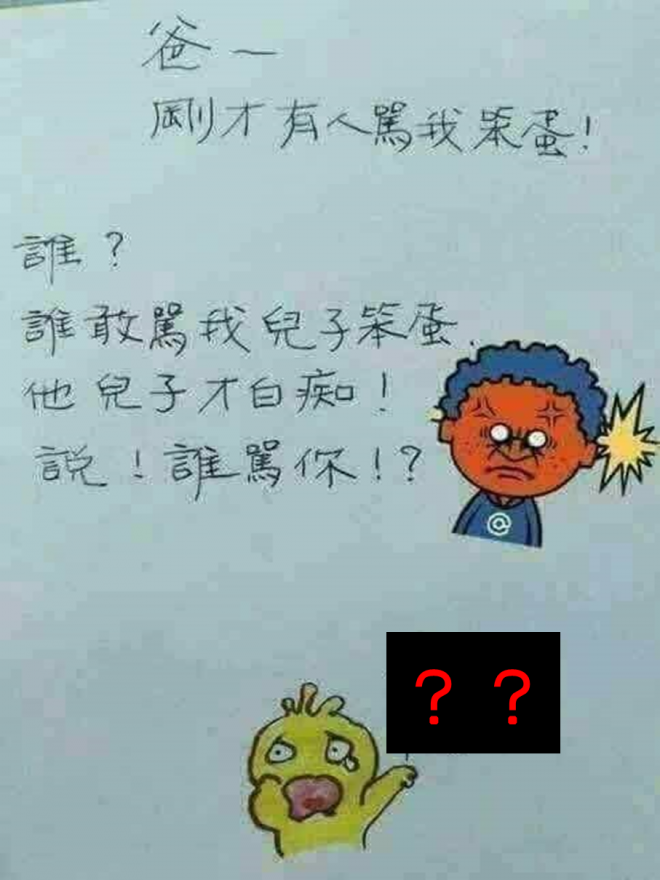 爸～
剛才有人罵我笨蛋!
誰?
誰敢罵我兒子笨蛋.
他兒子才白痴!
說!誰罵你!?
@
??